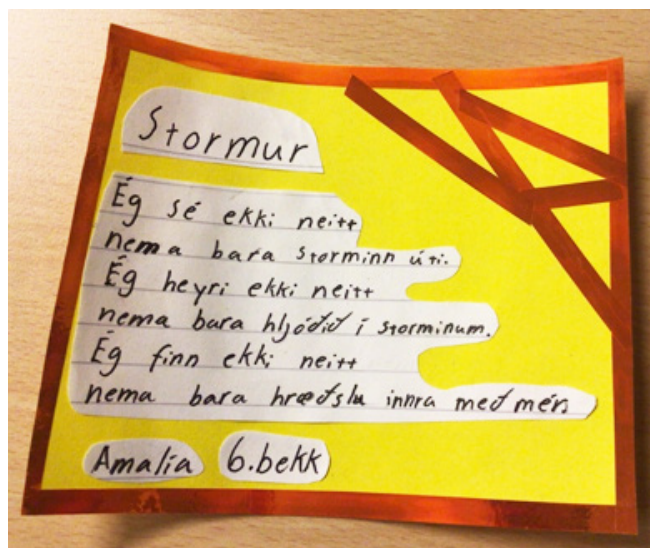 Stormur
Ég sé ekki neitt
nema bara storminn úti.
Ég heyri ekki neitt
nema bara hljóðið í storminum.
Ég finn ekki neitt
nema bara hræðslu innra með mér.
Amalía 6.bekk